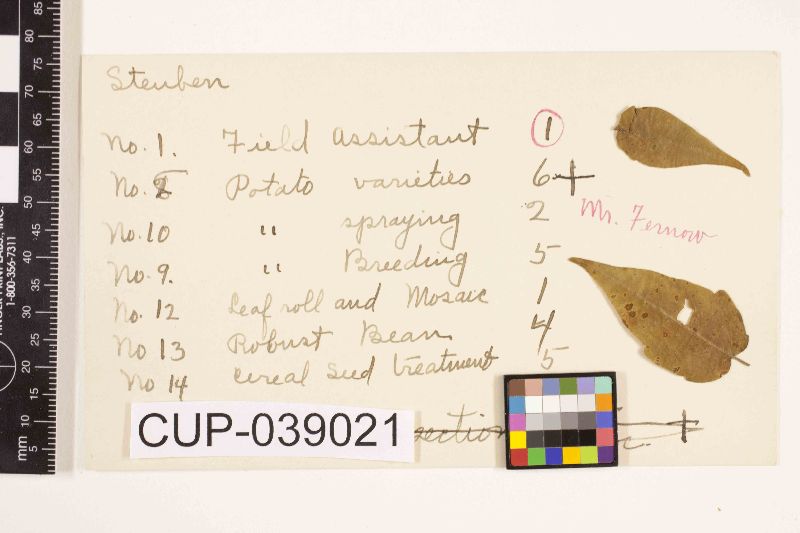 Steuben
No. 1. Field assistant 1
No. 8 Potato varieties 6+
No. 10 " spraying 2
Mr. Fernow
No. 9. " Breeding 5
No. 12 Leaf roll and Mosaic 1
No 13 Robust Bean 4
No 14 Cereal seed treatment 5
CUP-039021 section
1-800-356-7311
mm 5 10 15 20 25 30 35 40 45 50 55 60 65 70 75 80 85